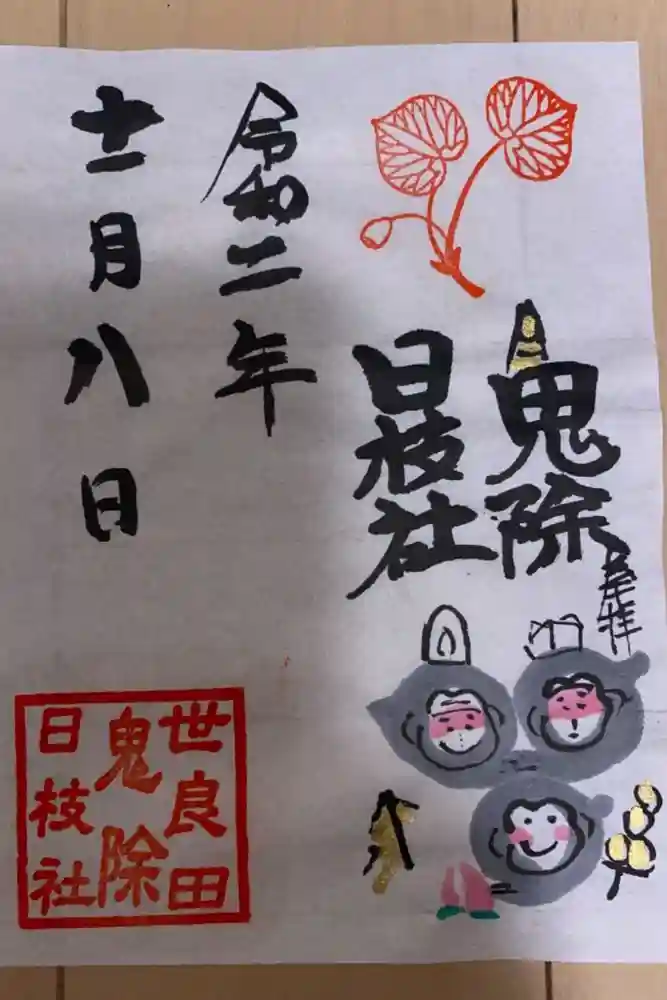 鬼除
日枝社
奉拝
令和二年
十一月八日
世良田
鬼除
日枝社